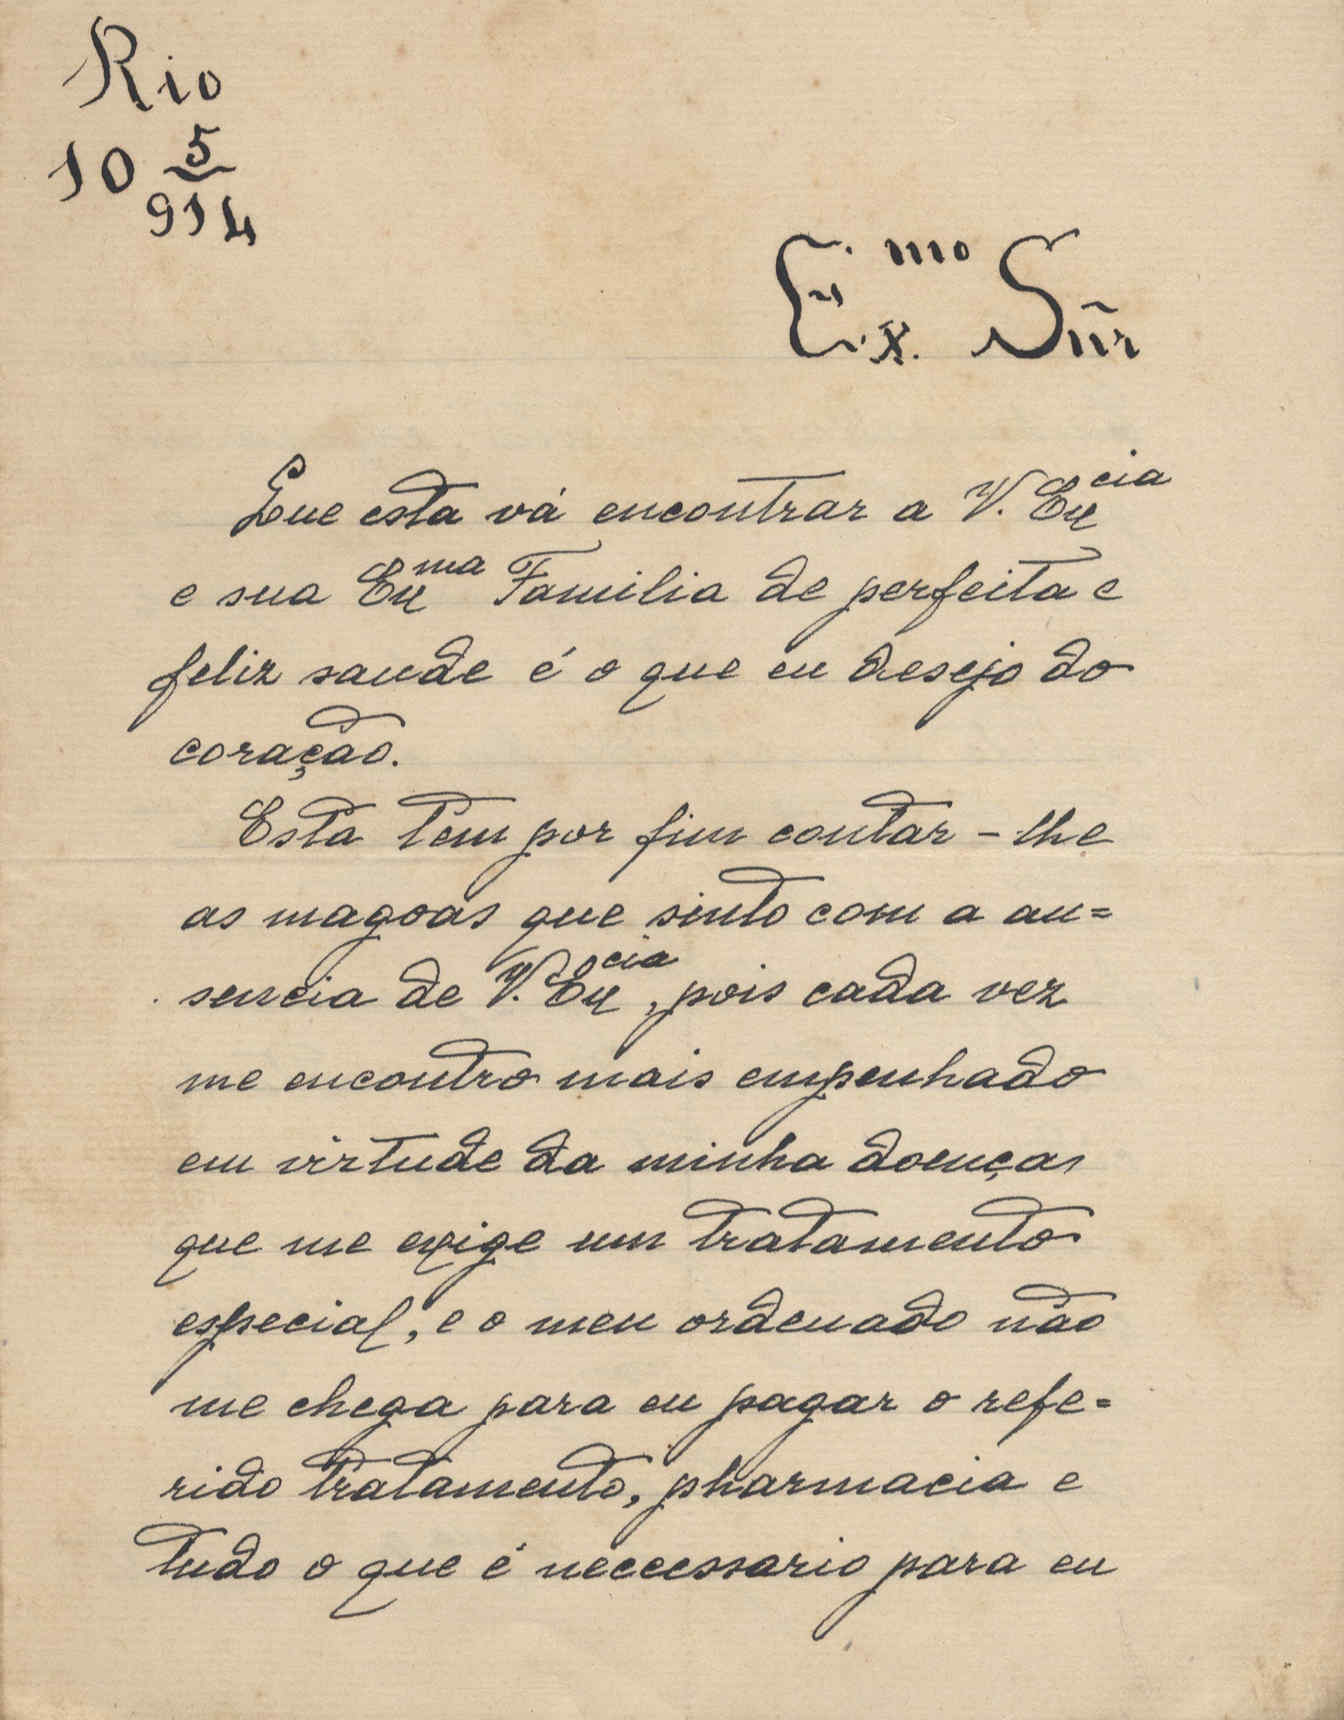 Rio
10 5/914
Ex.mo Sñr
Que esta vá encontrar a V. Excia
e sua Exma Familia de perfeita e
feliz saude é o que eu desejo do
coração.
Esta tem por fim contar-lhe
as magoas que sinto com a au=
sencia de V. Excia, pois cada vez
me encontro mais empenhado
em virtude da minha doença
que me exige um tratamento
especial, e o meu ordenado não
me chega para eu pagar o refe=
rido tratamento, pharmacia e
tudo o que é neccessario para eu